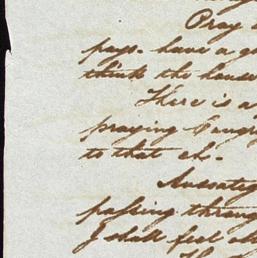 Pray
pays - have a go
think the house
There is a
praying Congr
to that eh -
passing through
I shall feel